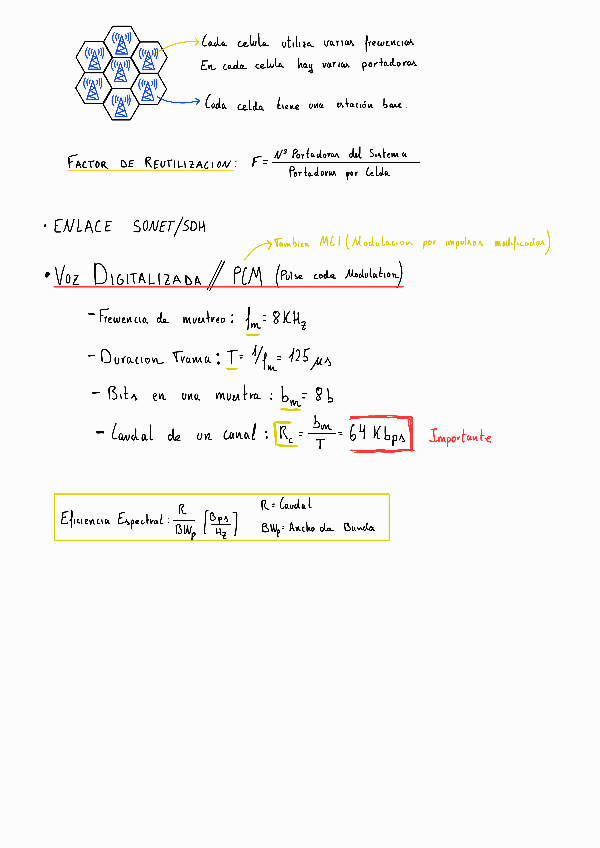 Cada celula utiliza varias frecuencias
En cada celula hay varias portadoras
Cada celda tiene una estación base.
FACTOR DE REUTILIZACION: F = Nº Portadoras del Sistema / Portadoras por Celda
· ENLACE SONET/SDH
Tambien MCI (Modulacion por impulsos modificados)
• VOZ DIGITALIZADA // PCM (Pulse code Modulation)
- Frecuencia de muestreo: fm = 8KHz
- Duracion Trama: T = 1/fm = 125 μs
- Bits en una muestra: bm = 8b
- Caudal de un canal: Rc = bm/T = 64 Kbps Importante
Eficiencia Espectral: R/BWp [Bps/Hz]
R = Caudal
BWp = Ancho de Banda